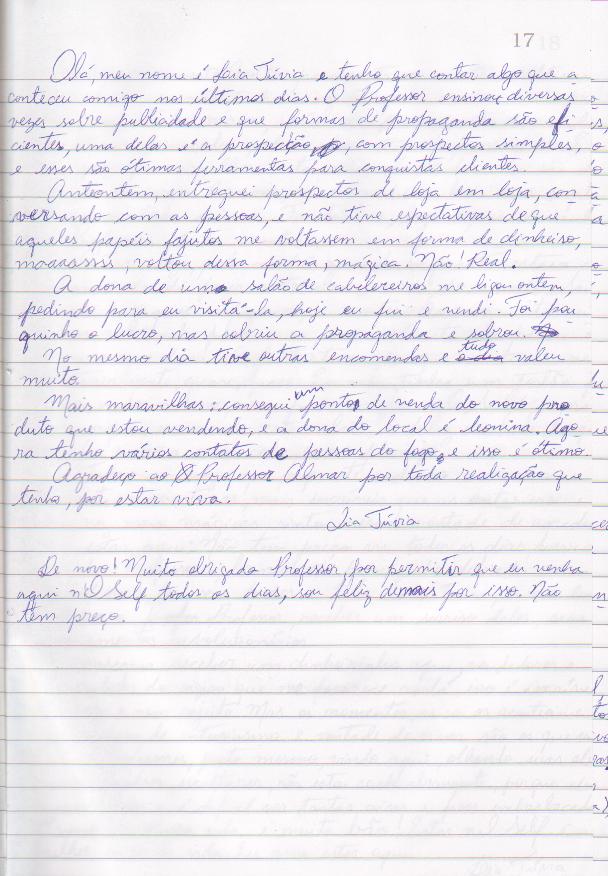 17
Olá, meu nome é Lia Túvia e tenho que contar algo que a
conteceu comigo nos últimos dias. O Professor ensinou diversas
vezes sobre publicidade e que formas de propaganda são efi
cientes, uma delas é a prospecção, com prospectos simples,
e esses são ótimas ferramentas para conquistas clientes.
Anteontem, entreguei prospectos de loja em loja, con
versando com as pessoas, e não tive espectativas de que
aqueles papéis fajutos me voltassem em forma de dinheiro,
maaassss, voltou dessa forma, mágica. Não! Real.
A dona de um salão de cabeleireiros me ligou ontem,
pedindo para eu visitá-la, hoje eu fui e vendi. Foi pou
quinho o lucro, mas cobriu a propaganda e sobrou.
No mesmo dia tive outras encomendas e tudo valeu
muito.
Mais maravilhas: consegui um ponto de venda do novo pro
duto que estou vendendo, e a dona do local é leonina. Ago
ra tenho vários contatos de pessoas do fogo, e isso é ótimo.
Agradeço ao Professor Almar por toda realização que
tenho, por estar viva.
Lia Túvia
De novo! Muito obrigada Professor, por permitir que eu venha
aqui n'O Self todos os dias, sou feliz demais por isso. Não
tem preço.